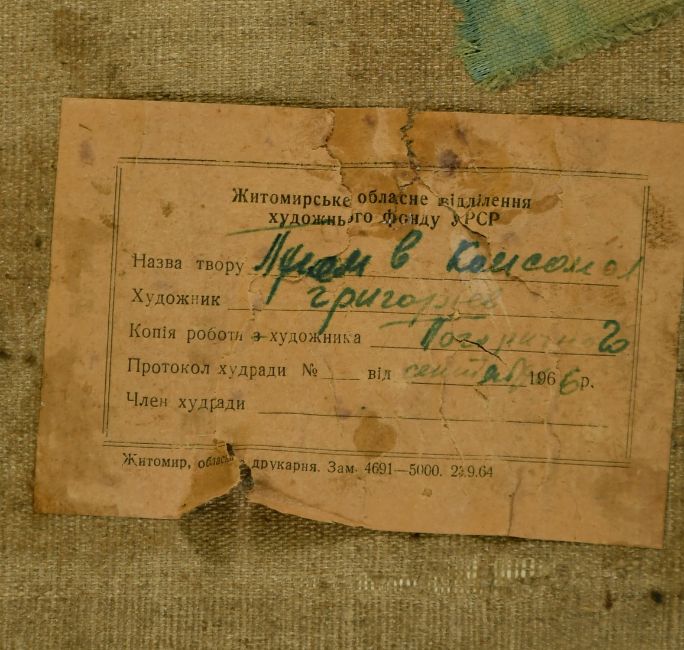 Житомирське обласне відділення
художнього фонду УРСР
Назва твору Прием в комсомол
Художник Григорьев
Копія роботи з художника
Протокол худради № від сентябр 1966 р.
Член худради
Житомир, обласна друкарня. Зам. 4691—5000. 9.64